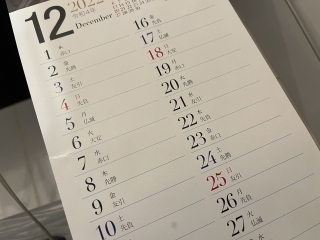 12
2022
令和4年
December
1 木 赤口
2 金 先勝
3 土 友引
4 日 先負
5 月 仏滅
6 火 大安
7 水 赤口
8 木 先勝
9 金 友引
10 土 先負
16 金 先負
17 土 仏滅
18 日 大安
19 月 赤口
20 火 先勝
21 水 友引
22 木 先負
23 金 赤口
24 土 先勝
25 日 友引
26 月 先負
27 火 仏滅